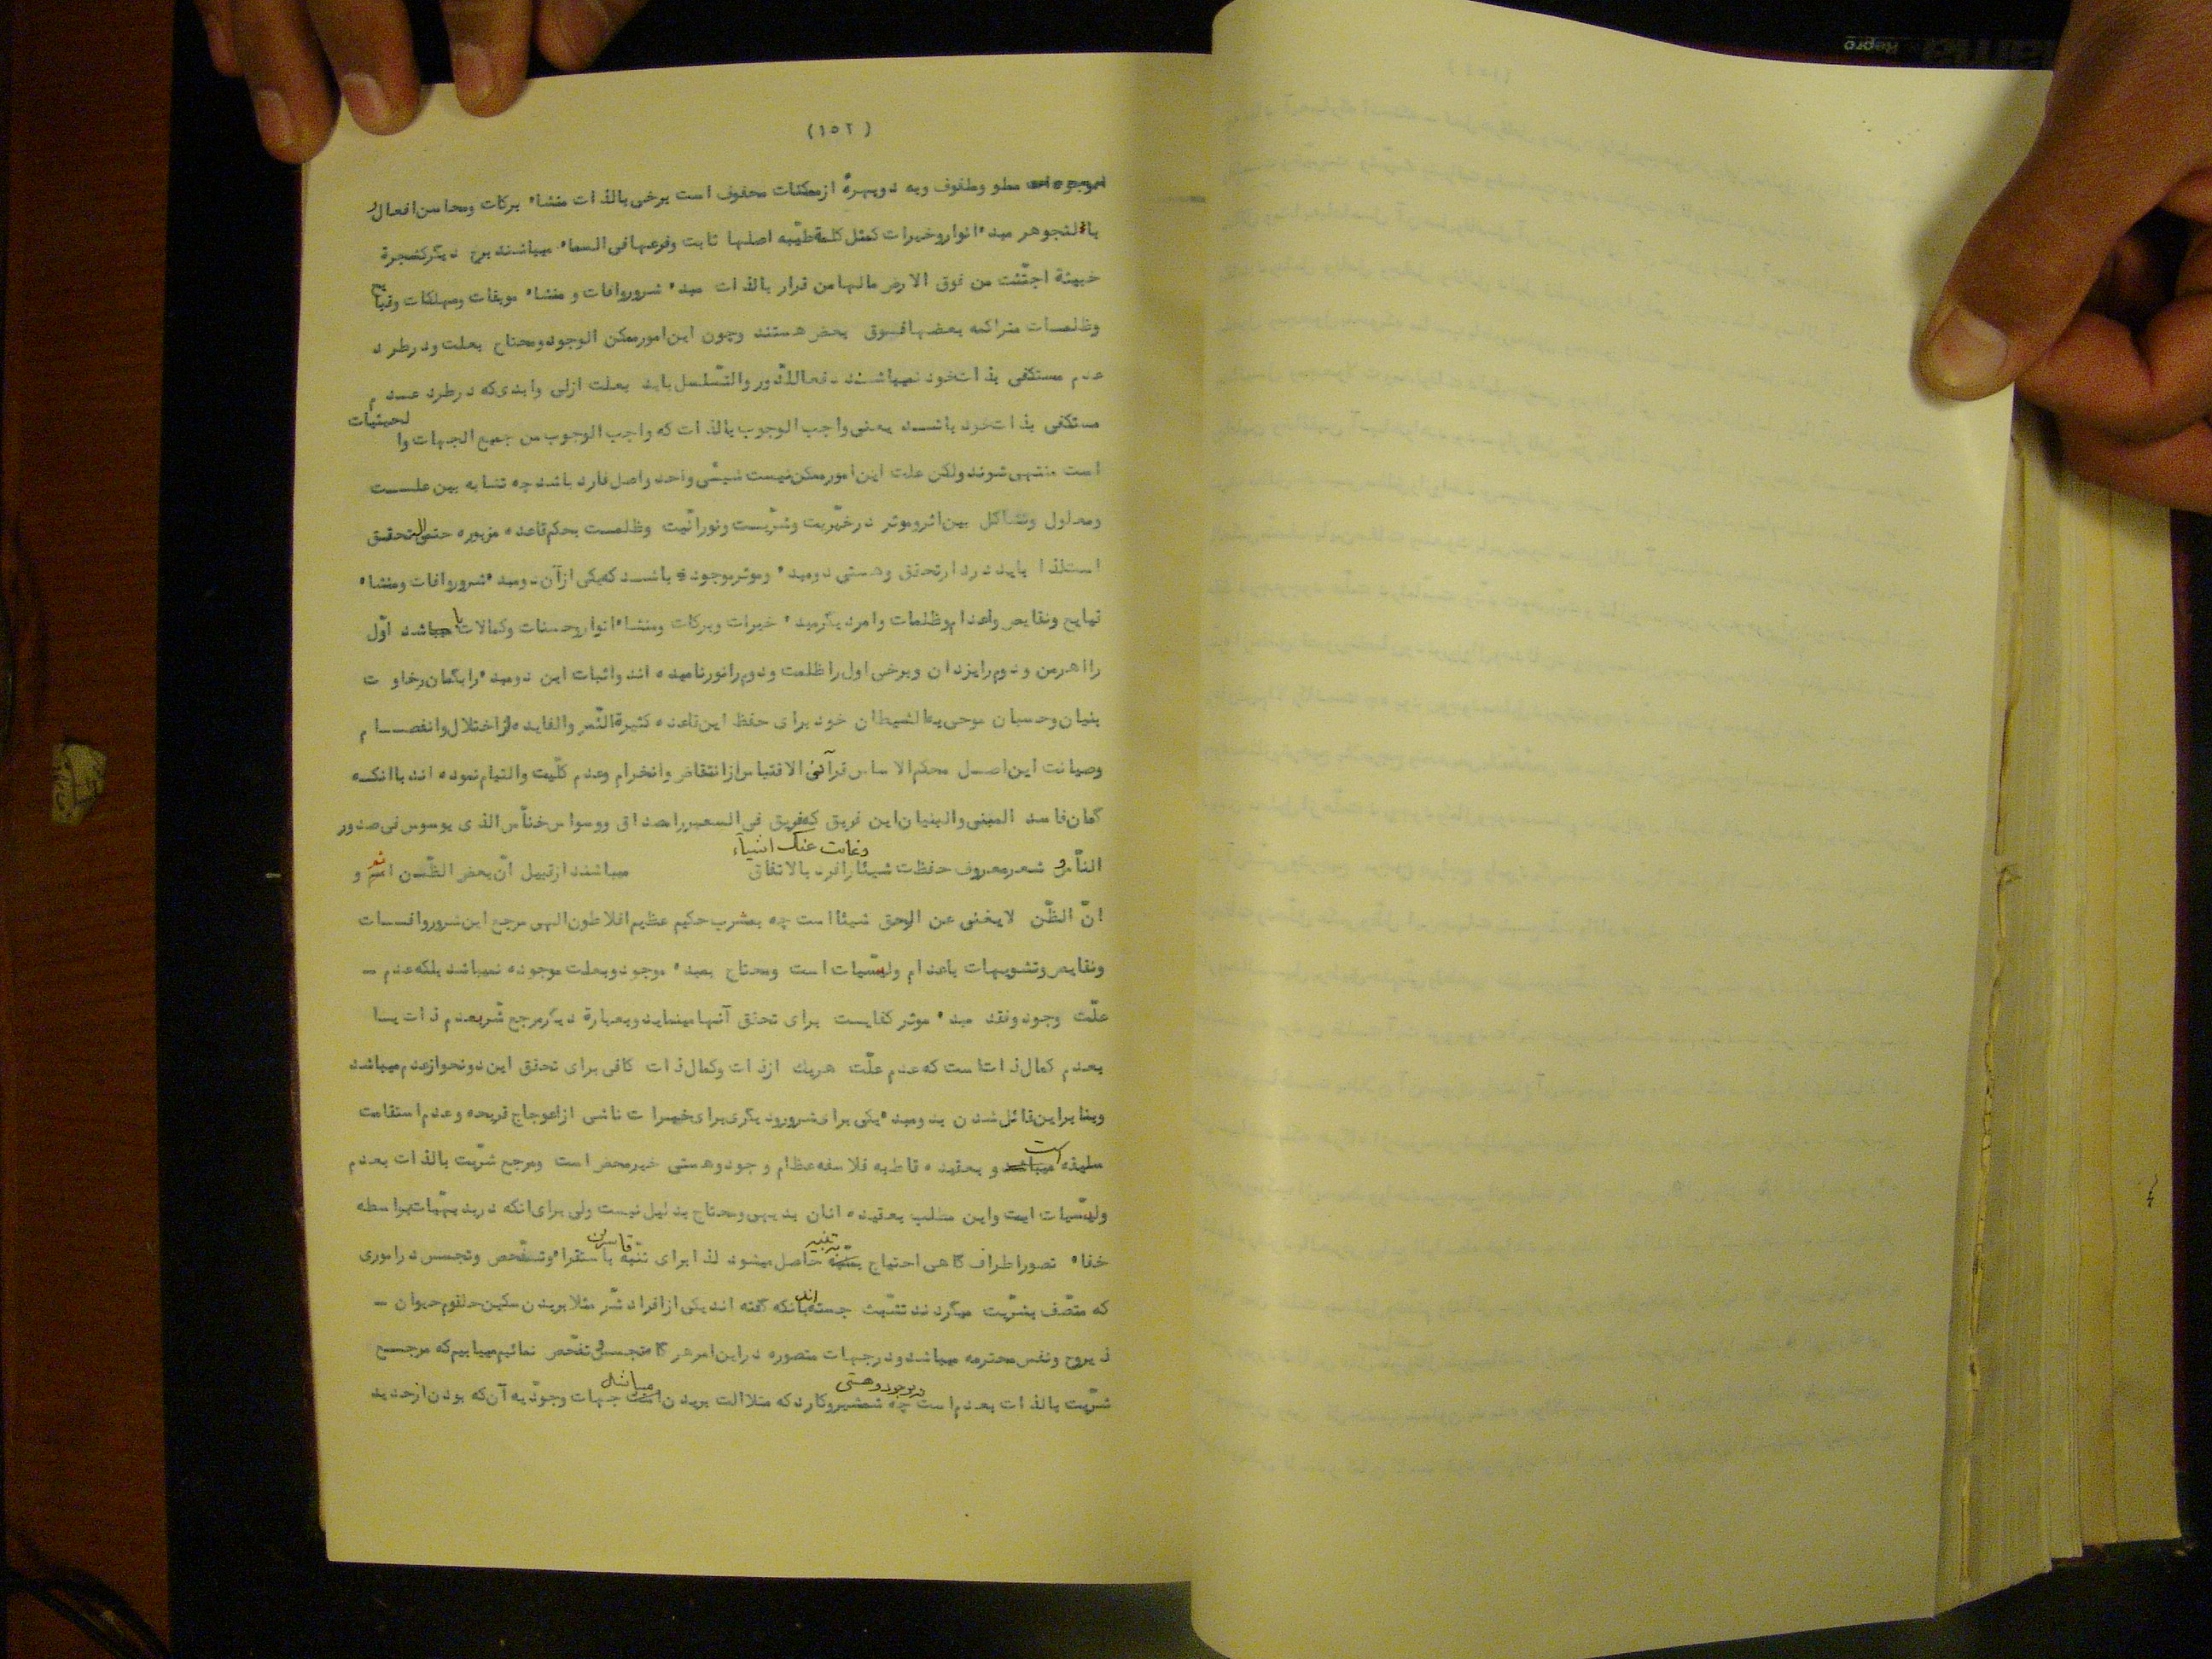 (۱۵۲)
مطو وطفوف وبه دوبهرهٔ ازممکنات محفوف است برخی بالذات منشاء برکات ومحاسن افعال
بالتجوهر مبدء انوار وخیرات کمثل کلمة طیّبه اصلها ثابت وفرعها فی السماء میباشند برخ دیگر کشجرة
خبیثة اجتثّت من فوق الارض مالها من قرار بالذات مبدء شرور وافات و منشاء موبقات ومهلکات وقبایح
وظلمات متراکمه بعضها فوق بعض هستند وچون این امور ممکن الوجود ومحتاج بعلت ودرطرد
عدم مستکفی بذات خود نمیباشند دفعا للدّور والتّسلسل باید بعلت ازلی وابدی که درطرد عدم
مستکفی بذات خود باشد یعنی واجب الوجوب بالذات که واجب الوجوب من جمیع الجهات والحیثیات
است منتهی شوند ولکن علت این امور ممکن نیست شیئی واحد واصل فارد باشد چه تشابه بین علت
ومعلول وتشاکل بین اثر وموثر درخیّریت وشرّیت ونورانیّت وظلمت بحکم قاعده مزبوره حتمی التحقق
است لذا باید دردار تحقق وهستی دومبدء وموثر موجود باشند که یکی ازآن دومبدء شرور وافات ومنشاء
قبایح ونقایص واعدام وظلمات وامر دیگر مبدء خیرات وبرکات ومنشاء انوار وحسنات وکمالات باشد اوّل
را اهرمن ودوم را یزدان وبرخی اول را ظلمت ودوم را نور نامیده اند واثبات این دومبدء رابگمان رخاوت
بنیان وحسبان موحی به الشیطان خود برای حفظ این قاعده کثیرة الثّمر والفایده از اختلال وانفصام
وصیانت این اصل محکم الاساس قرآنی الاقتباس از انتقاض وانخرام وعدم کلّیت والتیام نموده اند با انکه
گمان فاسد المبنی والبنیان این فریق که فریق فی السعیر را مصداق ووسواس خنّاس الذی یوسوس فی صدور
النّاس و شعر معروف حفظت شیئا وغابت عنک اشیآء را فرد بالاتفاق میباشند ازقبیل انّ بعض الظّن اثم و
انّ الظّن لایغنی عن الحق شیئا است چه بمشرب حکیم عظیم افلاطون الهی مرجع این شرور وافات
ونقایص وتشویهات باعدام ولیسّیات است ومحتاج بمبدء موجود وبعلت موجوده نمیباشد بلکه عدم –
علّت وجود وفقد مبدء موثر کفایت برای تحقق آنها مینماید وبعبارة دیگر مرجع شر بعدم ذات یا
بعدم کمال ذات است که عدم علّت هریک ازذات وکمال ذات کافی برای تحقق این دونحو ازعدم میباشد
وبنابراین قائل شدن بدومبدء یکی برای شرور ودیگری برای خیرات ناشی از اعوجاج قریحه وعدم استقامت
سلیقه است و بعقیده قاطبه فلاسفه عظام وجود وهستی خیر محض است ومرجع شرّیت بالذات بعدم
ولیسّیات است واین مطلب بعقیده انان بدیهی ومحتاج بدلیل نیست ولی برای انکه دربدیهیّات بواسطه
خفاء تصور اطراف گاهی احتیاج به تنبیه حاصل میشود لذا برای تنبّه قاصرین باستقراء وتفحّص وتجسس دراموری
که متّصف بشرّیت میگردند تشبّث جسته اند بانکه گفته اند یکی از افراد شّر مثلا بریدن سکین حلقوم حیوان –
ذیروح ونفس محترمه میباشد ودرجهات متصوره دراین امر هر گاه تجسس و تفحّص نمائیم میابیم که مرجع
شرّیت بالذات بعدم است چه شمشیر وکارد که مثلا الت بریدن میباشد جهات وجودّیه آن که بودن ازحدید